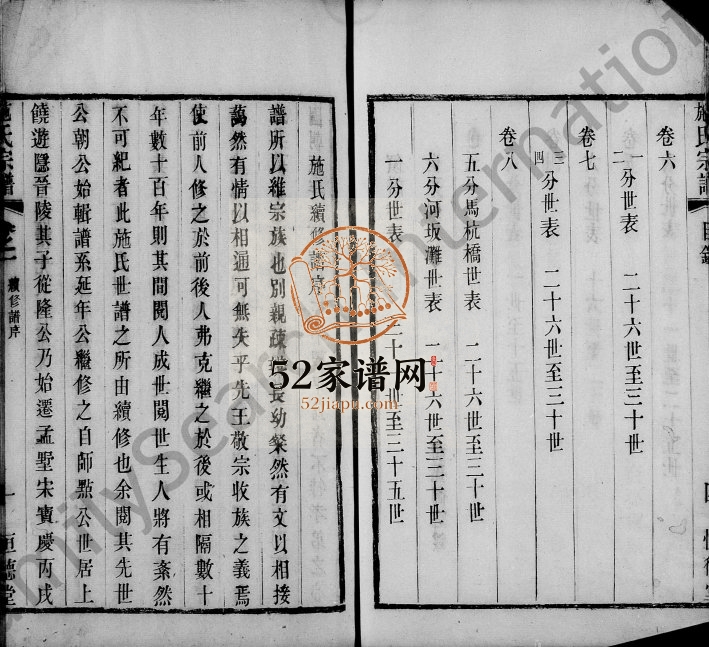 施氏宗譜
卷六
一分世表 二十六世至三十世
二
卷七
三分世表 二十六世至三十世
四
卷八
五分馬杭橋世表 二十六世至三十世
六分河坂灘世表 二十六世至三十世
一分世表 三十世至三十五世
施氏續修譜序
譜所以維宗族也別親疎長幼粲然有文以相接
藹然有情以相通可無失乎先王敬宗收族之義焉
使前人修之於前後人弗克繼之於後或相隔數十
年數十百年則其間閱人成世閱世生人將有紊然
不可紀者此施氏世譜之所由續修也余閱其先世
公朝公始輯譜系延年公繼修之自師點公世居上
饒遊隱晉陵其子從隆公乃始遷孟墅宋寶慶丙戌
施氏宗譜
卷之一
續修譜序
一
恒德堂
52家谱网
52jiapu.com